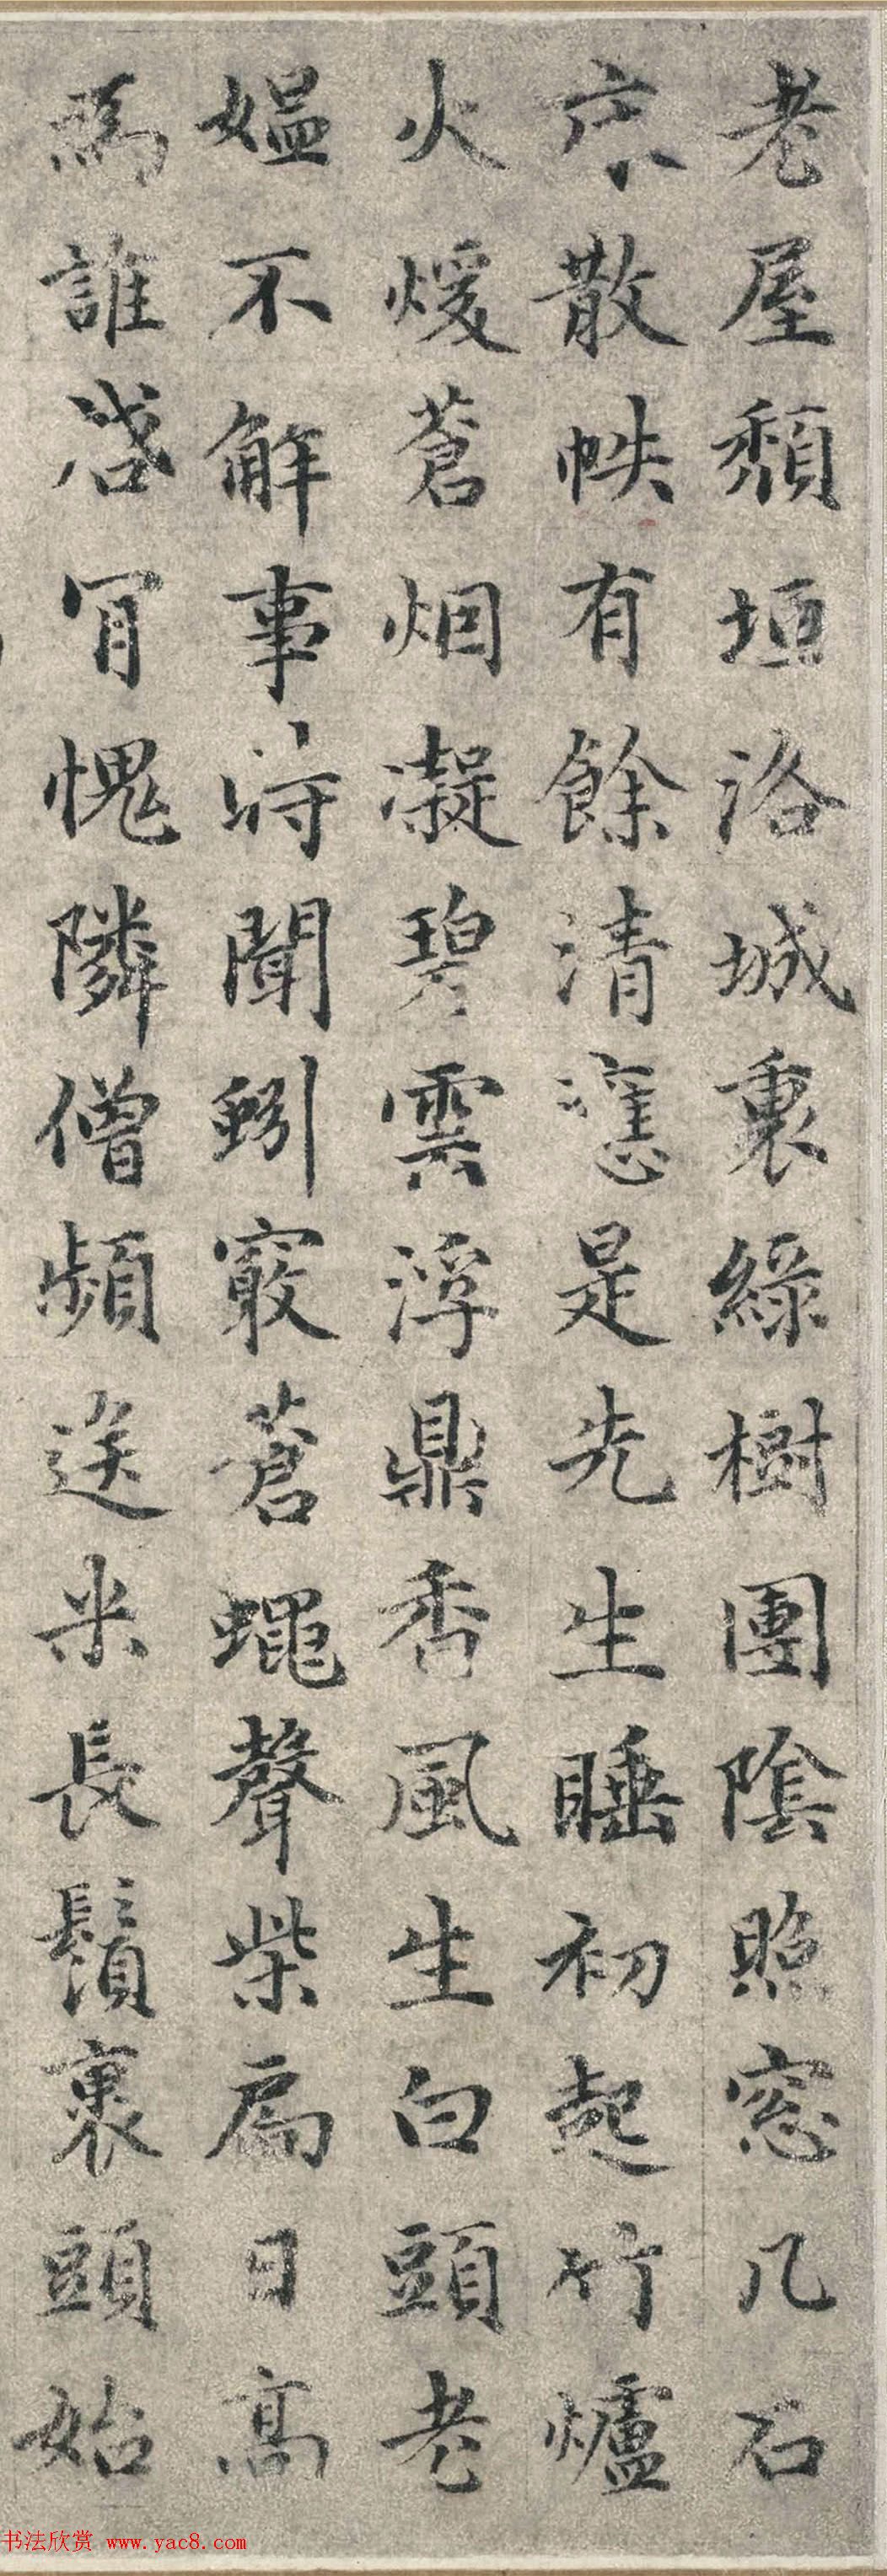 老屋頹垣洛城裏綠樹團陰照窓几石
床散帙有餘清窓是先生睡初起竹爐
火煖蒼烟凝碧雲浮鼎香風生白頭老
媼不解事時聞蚓竅蒼蠅聲柴扃日高
為誰啓冐愧隣僧頻送米長鬚裹頭始
书法欣赏 www.yac8.com